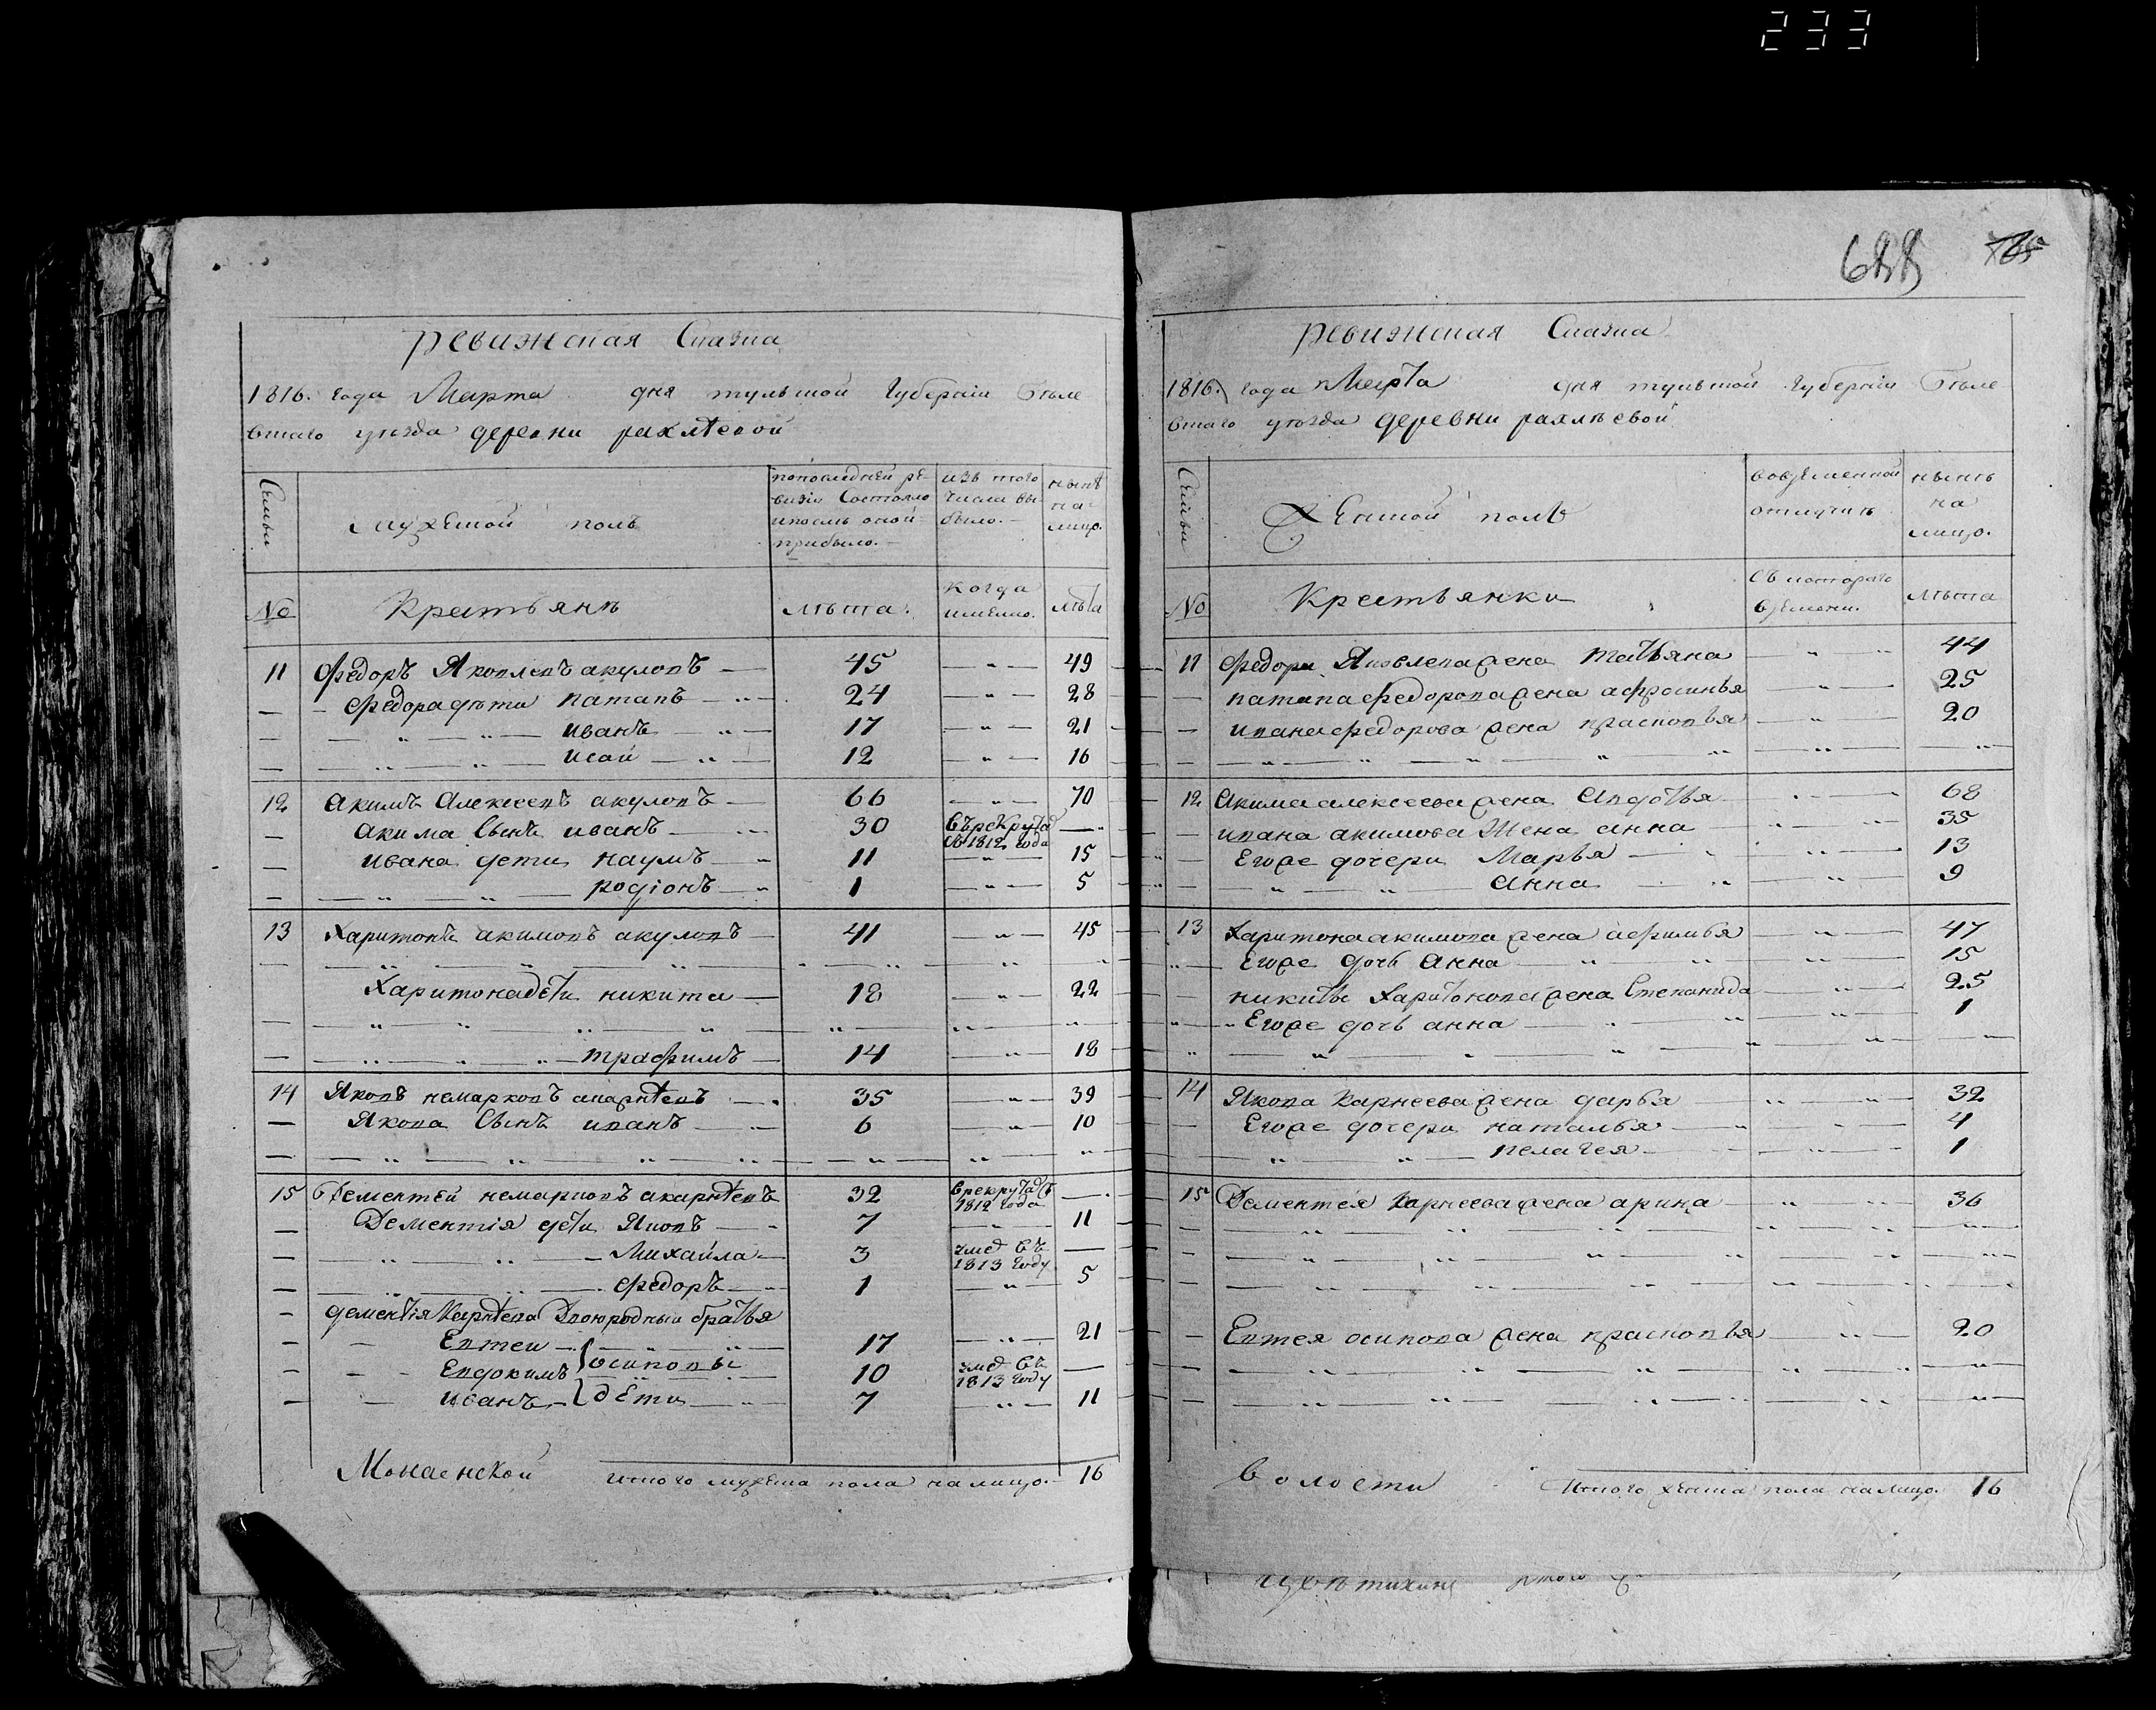 233
688 765
Ревижская Сказка
1816. года Марта дня тульской Губернiи Бѣле
вскаго уѣзда деревни рахлѣевой
Семьи
Мужеской полъ
попоследней ре-
визiи Состояло
ипослѣ оной
прибыло.
изъ того
числа вы-
было.
нынѣ
на
лицо.
No
Крестьянѣ
лѣта.
когда
имѣнно.
лѣта
11 Федоръ Яковлевъ акуловъ 45 49
Федора дѣти патапъ 24 28
иванъ 17 21
исай 12 16
12 Акимъ Алексеевъ акуловъ 66 70
Акима Сынъ иванъ 30 Въ рекрута
съ 1812 года
ивана дети наумъ 11 15
родiонъ 1 5
13 Харитонъ акимовъ акуловъ 41 45
Харитона дети никита 18 22
трафимъ 14 18
14 Яковъ 35 39
Якова Сынъ иванъ 6 10
15 Дементей 32 в рекрутаѣ
1812 года
Дементiя дети Яковъ 7 11
Михайла 3 умеръ въ
1813 году
Федоръ 1 5
дементiя Карнѣева Двоюродныи братья
Евтеи 17 21
Евдокимъ осиповы 10 умеръ въ
1813 году
иванъ дети 7 11
Монаенской итого мужеска пола налицо. 16
Ревижская Сказка
1816. года Марта дня тульской Губернiи Бѣле
вскаго уѣзда деревни рахлѣевой
Семьи
Женской полъ
вовременной
отлучкѣ
нынѣ
на
лицо.
No
Крестьянки
Съ котораго
времени.
лѣта
11 Федора Яковлева жена татьяна 44
патапа федорова жена афросинья 25
ивана федорова жена прасковья 20
12 Акима алексеева жена Авдотья 68
ивана акимова Жена анна 35
Егоже дочери Марья 13
Анна 9
13 Харитона акимова жена афимья 47
Егоже дочь Анна 15
никиты Харитонова жена Степанида 25
Егоже дочь анна 1
14 Якова Карнеева жена дарья 32
Егоже дочери наталья 4
пелагея 1
15 Дементея Карнеева жена арина 36
Евтея осипова жена прасковья 20
волости Итого женска пола налицо. 16